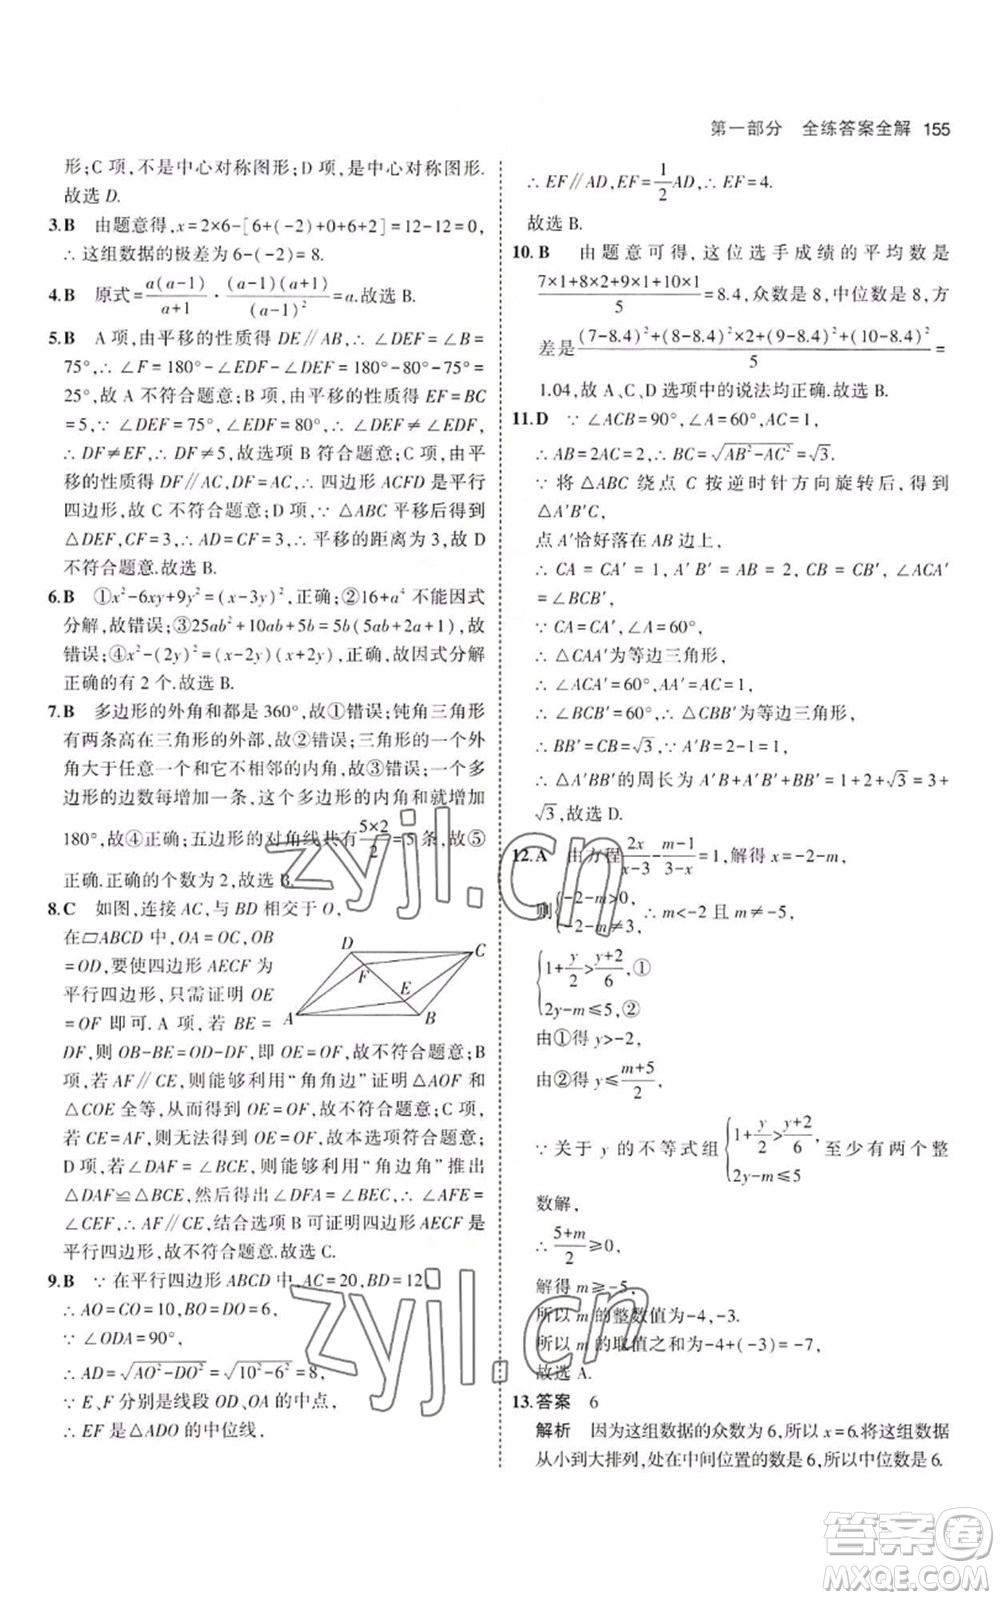 第一部分 全练答案全解 155
形;C 项,不是中心对称图形;D 项,是中心对称图形.
故选 D.
3.B 由题意得,x=2×6-[6+(-2)+0+6+2]=12-12=0,
∴ 这组数据的极差为 6-(-2)=8.
4.B 原式=a(a-1)/(a+1)·(a-1)(a+1)/(a-1)²=a.故选 B.
5.B A 项,由平移的性质得 DE∥AB,∴ ∠EDF=∠B=
75°,∴ ∠F=180°-∠EDF-∠DEF=180°-80°-75°=
25°,故 A 不符合题意;B 项,由平移的性质得 EF=BC
=5,∵ ∠DEF=75°,∠EDF=80°,∴ ∠DEF≠∠EDF,
∴ DF≠EF,∴ DF≠5,故选项 B 符合题意;C 项,由平
移的性质得 DF∥AC,DF=AC,∴ 四边形 ACFD 是平行
四边形,故 C 不符合题意;D 项,∵ △ABC 平移后得到
△DEF,CF=3,∴ AD=CF=3,∴ 平移的距离为 3,故 D
不符合题意.故选 B.
6.B ①x²-6xy+9y²=(x-3y)²,正确;②16+a⁴ 不能因式
分解,故错误;③25ab²+10ab+5b=5b(5ab+2a+1),故
错误;④x²-(2y)²=(x-2y)(x+2y),正确,故因式分解
正确的有 2 个.故选 B.
7.B 多边形的外角和都是 360°,故①错误;钝角三角形
有两条高在三角形的外部,故②错误;三角形的一个外
角大于任意一个和它不相邻的内角,故③错误;一个多
边形的边数每增加一条,这个多边形的内角和就增加
180°,故④正确;五边形的对角线共有5×2/2=5 条,故⑤
正确.正确的个数为 2,故选 B.
8.C 如图,连接 AC,与 BD 相交于 O,
在▱ABCD 中,OA=OC,OB
=OD,要使四边形 AECF 为
平行四边形,只需证明 OE
=OF 即可.A 项,若 BE=
D C F E A B
DF,则 OB-BE=OD-DF,即 OE=OF,故不符合题意;B
项,若 AF∥CE,则能够利用“角角边”证明 △AOF 和
△COE 全等,从而得到 OE=OF,故不符合题意;C 项,
若 CE=AF,则无法得到 OE=OF,故本选项符合题意;
D 项,若∠DAF=∠BCE,则能够利用“角边角”推出
△DAF≌△BCE,然后得出∠DFA=∠BEC,∴ ∠AFE=
∠CEF,∴ AF∥CE,结合选项 B 可证明四边形 AECF 是
平行四边形,故不符合题意.故选 C.
9.B ∵ 在平行四边形 ABCD 中,AC=20,BD=12,
∴ AO=CO=10,BO=DO=6,
∵ ∠ODA=90°,
∴ AD=√(AO²-DO²)=√(10²-6²)=8,
∵ E、F 分别是线段 OD、OA 的中点,
∴ EF 是△ADO 的中位线,
∴ EF∥AD,EF=1/2 AD,∴ EF=4.
故选 B.
10.B 由题意可得,这位选手成绩的平均数是
(7×1+8×2+9×1+10×1)/5=8.4,众数是 8,中位数是 8,方
差是((7-8.4)²+(8-8.4)²×2+(9-8.4)²+(10-8.4)²)/5=
1.04,故 A、C、D 选项中的说法均正确.故选 B.
11.D ∵ ∠ACB=90°,∠A=60°,AC=1,
∴ AB=2AC=2,∴ BC=√(AB²-AC²)=√3.
∵ 将 △ABC 绕点 C 按逆时针方向旋转后,得到
△A′B′C,
点 A′恰好落在 AB 边上,
∴ CA=CA′=1,A′B′=AB=2,CB=CB′,∠ACA′
=∠BCB′,
∵ CA=CA′,∠A=60°,
∴ △CAA′为等边三角形,
∴ ∠ACA′=60°,AA′=AC=1,
∴ ∠BCB′=60°,∴ △CBB′为等边三角形,
∴ BB′=CB=√3,∴ A′B=2-1=1,
∴ △A′BB′的周长为 A′B+A′B′+BB′=1+2+√3=3+
√3,故选 D.
12.A 由方程2x/(x-3)-(m-1)/(3-x)=1,解得 x=-2-m,
则{-2-m>0, -2-m≠3, ∴ m<-2 且 m≠-5,
{1+y/2>(y+2)/6,①
2y-m≤5,②
由①得 y>-2,
由②得 y≤(m+5)/2,
∵ 关于 y 的不等式组{1+y/2>(y+2)/6, 2y-m≤5 至少有两个整
数解,
∴ (5+m)/2≥0,
解得 m≥-5,
所以 m 的整数值为-4,-3.
所以 m 的取值之和为-4+(-3)=-7,
故选 A.
13.答案 6
解析 因为这组数据的众数为 6,所以 x=6.将这组数据
从小到大排列,处在中间位置的数是 6,所以中位数是 6.
zyjl.cn
zyjl.cn
答案卷